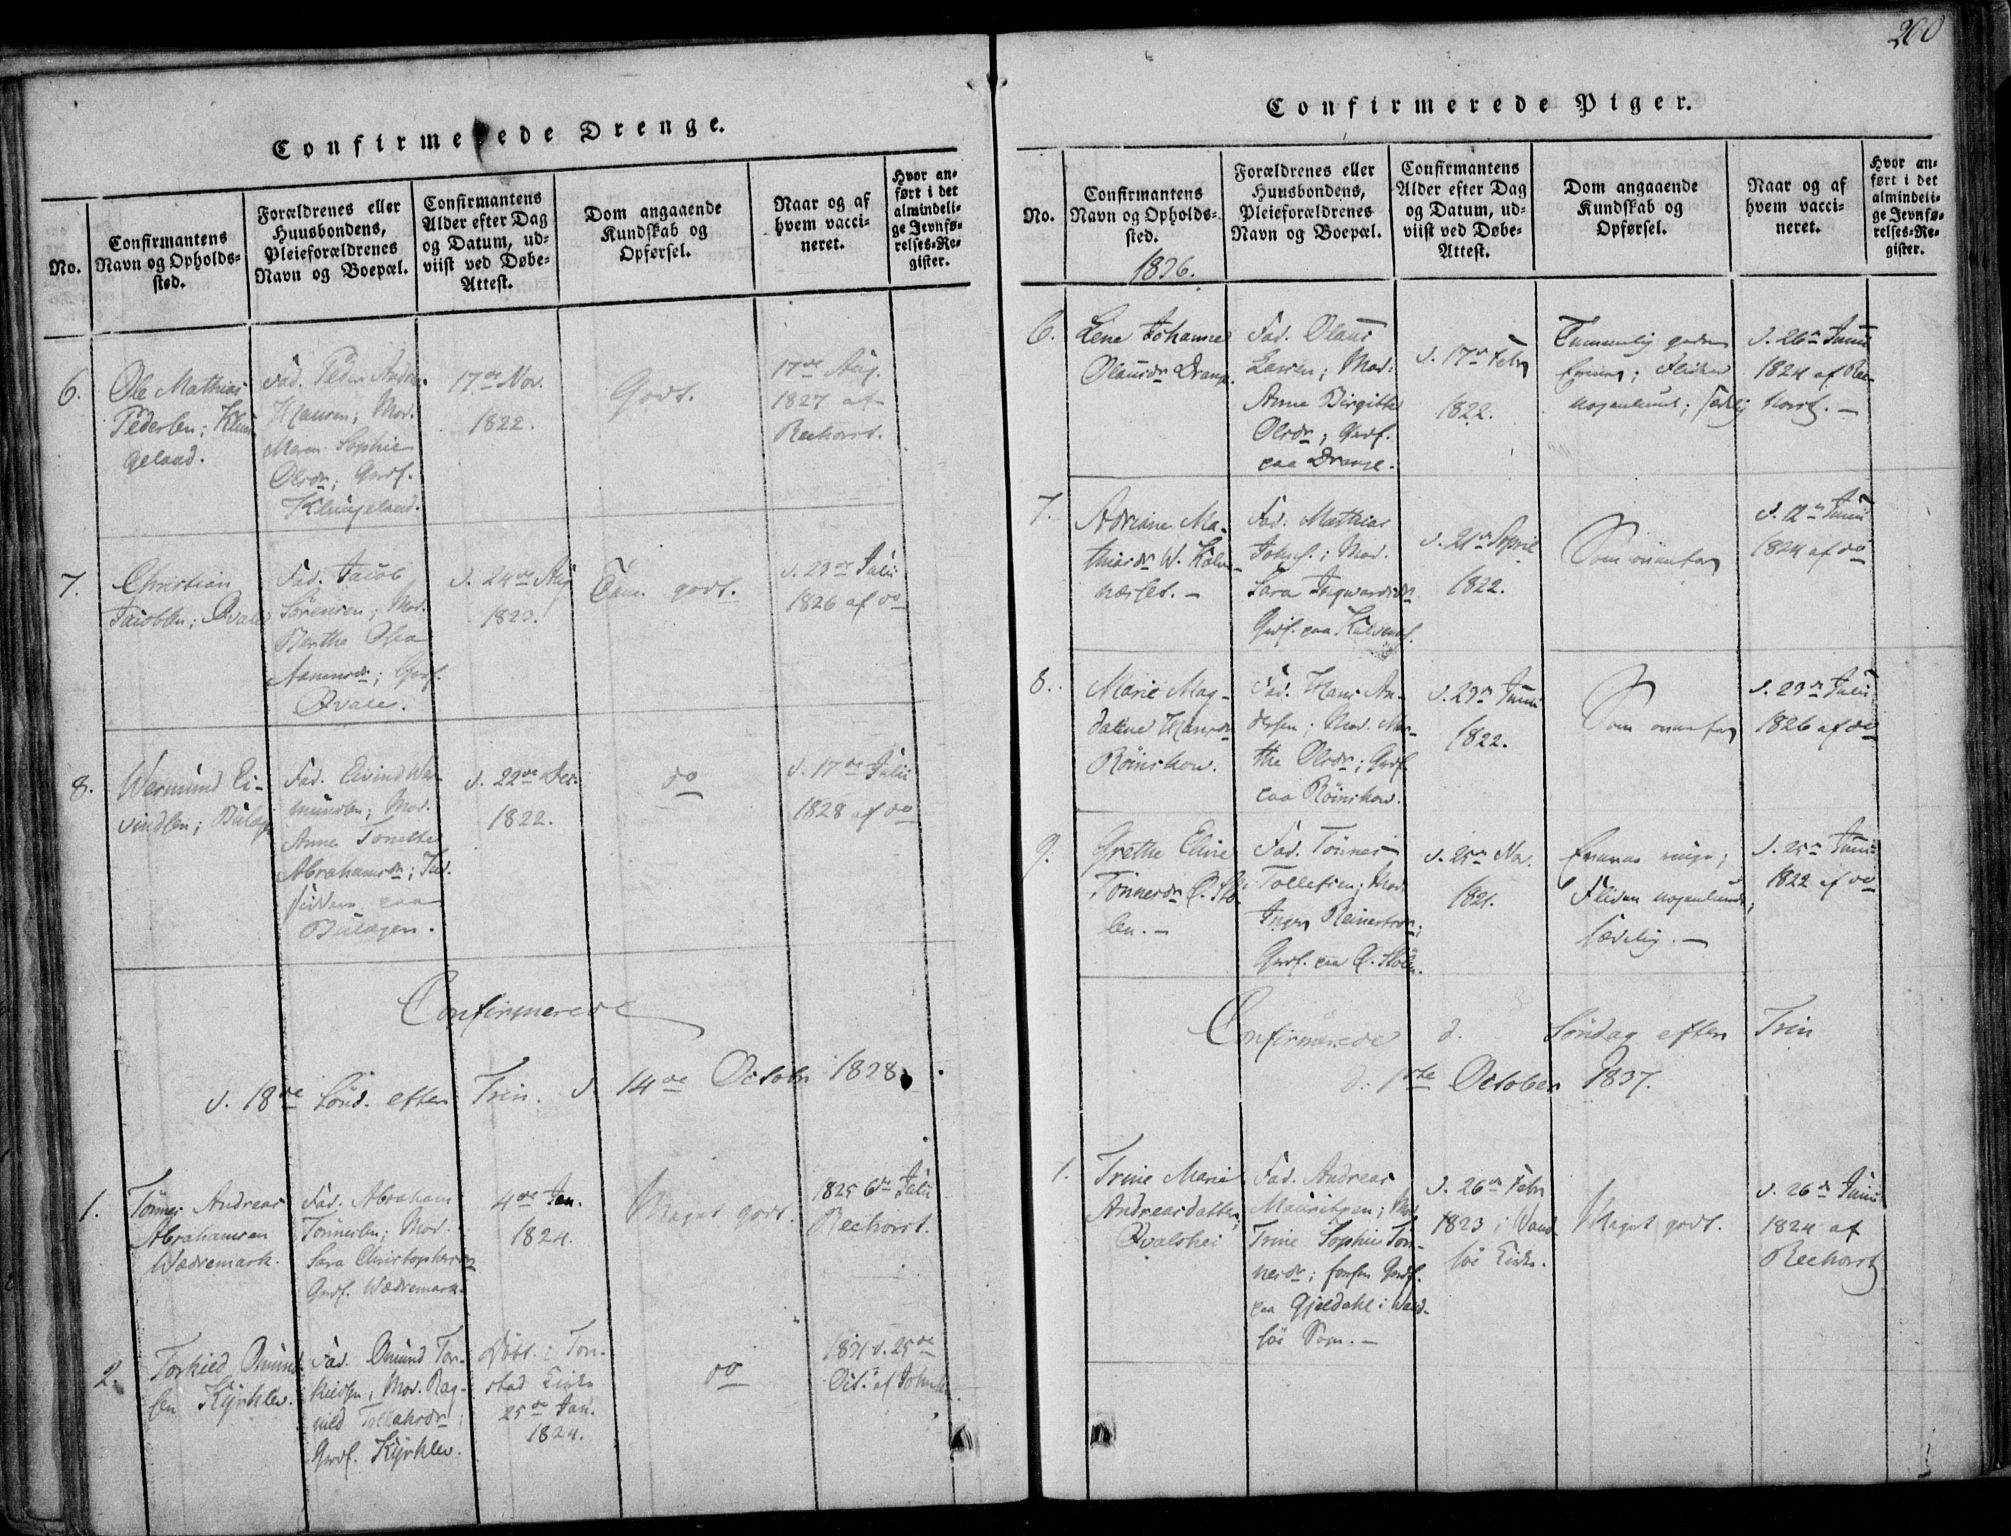 200
Confirmerede Drenge.
No.
Confirmantens
Navn og Opholds-
sted.
Forældrenes eller
Huusbondens,
Pleieforældrenes
Navn og Boepæl.
Confirmantens
Alder efter Dag
og Datum, ud-
viist ved Døbe-
Attest.
Dom angaaende
Kundskab og
Opførsel.
Naar og af
hvem vacci-
neret.
Hvor an-
ført i det
almindeli-
ge Jevnfø-
relses-Re-
gister.
6.
Ole Mathias
Pedersen; Klun-
geland.
Fad. Peder Andr.
Hansen; Mod.
Maren Sophie
Olsdr; Grdf.
Klungeland.
17de Nov.
1822.
Godt.
17de Aug.
1827 af
Rechorst.
7.
Christian
Jacobsen; Qvale
Fad. Jacob
Sørensen; Mod.
Berthe Osea
Aanensdr; Grdf.
Qvale.
d. 24de Aug
1823.
Tem. godt.
d. 29de Julii
1826 af do
8.
Wermund Ei-
vindsen; Bulag
Fad. Eivind Wer-
mundsen; Mod.
Anne Tonette
Abrahamsdr; Ind.
paa
Bulagen.
d. 22de Dec.
1822.
do
d. 17de Julii
1828 af do
Confirmerede
d. 18de Sönd. efter Trin. d. 14de Octobr 1838.
1.
Tönnes Andreas
Abrahamsen
Wædremark.
Fad. Abraham
Tönnesen; Mod.
Sara Christophersdr
Grdf. Wædremark.
4de Jan.
1824.
Meget godt.
1825 6te Julii
Rechorst.
2.
Torkild Omund
sen Kÿrklev.
Fad. Omund Tor-
kildsen, Mod. Rag-
nild Tollaksdr;
Grdf. Kÿrklev.
Döbt i Ton-
stad Kirke
25de Jan.
1824.
do
1831 d. 25de
Oct. af Johnsen
Confirmerede Piger.
No.
Confirmantens
Navn og Opholds-
sted.
1836.
Forældrenes eller
Huusbondens,
Pleieforældrenes
Navn og Boepæl.
Confirmantens
Alder efter Dag
og Datum, ud-
viist ved Døbe-
Attest.
Dom angaaende
Kundskab og
Opførsel.
Naar og af
hvem vacci-
neret.
Hvor an-
ført i det
almindeli-
ge Jevnfø-
relses-Re-
gister.
6.
Lene Johanne
Olausdr Drange.
Fad. Olaus
Larsen; Mod:
Anne Birgitte
Olsdr; Grdf.
paa Drange.
d. 17de Febr
1822.
Temmelig gode
Evner; Fliden
nogenlunde; sædelig
d. 26de Junii
1824 af Rec-
horst. —
7.
Adriane Ma-
thiasdr W. Kalve-
næsset. —
Fad. Mathias
Johns.; Mod.
Sara Ingwardsdr
Grdf. paa Kalvenæs.
d. 21de April
1822.
Som ovenfor
d. 12te Junii
1824 af do
8.
Marie Mag-
dalene Hansdr
Röinskow.
Fad. Hans An-
dersen; Mod. Mar-
the Olsdr; Grdf.
paa Röinskow.
d. 29de Junii
1822.
Som ovenfor
d. 29de Julii
1826 af do
9.
Grethe Eline
Tönnesdr Ö. Stö-
len. —
Fad. Tönnes
Tollefsen; Mod.
Inger Reinertsdr;
Grdf. paa Ö. Stölen.
d. 25de Nov.
1821.
Evnerne ringe;
Fliden nogenlunde;
sædelig. —
d. 25de Junii
1822 af do
Confirmerede d. Söndag efter Trin
d. 1ste October 1837.
1.
Trine Marie
Andreasdatter;
Qvalshei
Fad. Andreas
Mauritzen; Mod.
Trine Sophie Tön-
nesdr; Grdf.
paa Gjeldahl i Wand-
söe Sogn. —
d. 26de Febr
1823 i Wand
söe Kirke.
Meget godt.
d. 26de Junii
1824 af
Rechorst